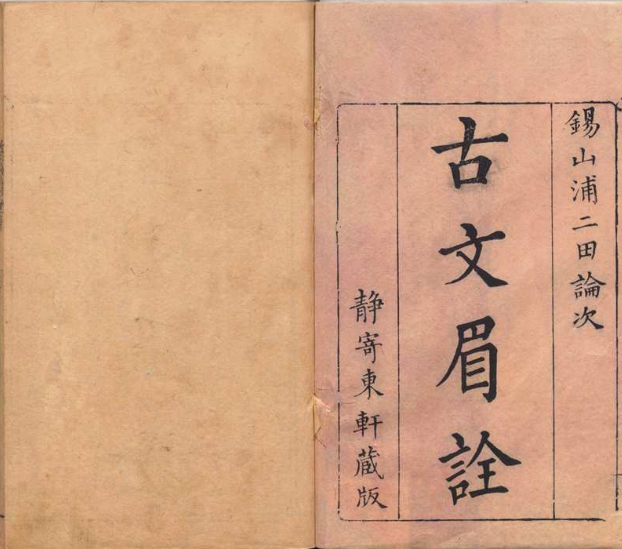 錫山浦二田論次
古文眉詮
静寄東軒藏版